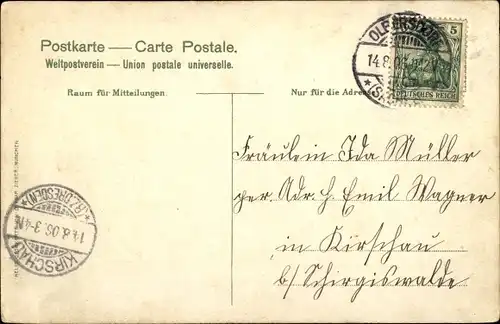 Postkarte — Carte Postale.
Weltpostverein — Union postale universelle.
Raum für Mitteilungen
Nur für die Adresse
5
DEUTSCHES REICH
14.8.
Fräulein Ida Müller
per. Adr. H. Emil Wagner
in Kirschau
b/ Schirgiswalde.
KIRSCHAU
14.8.06. 3-4N.
*(BZ.DRESDEN)*